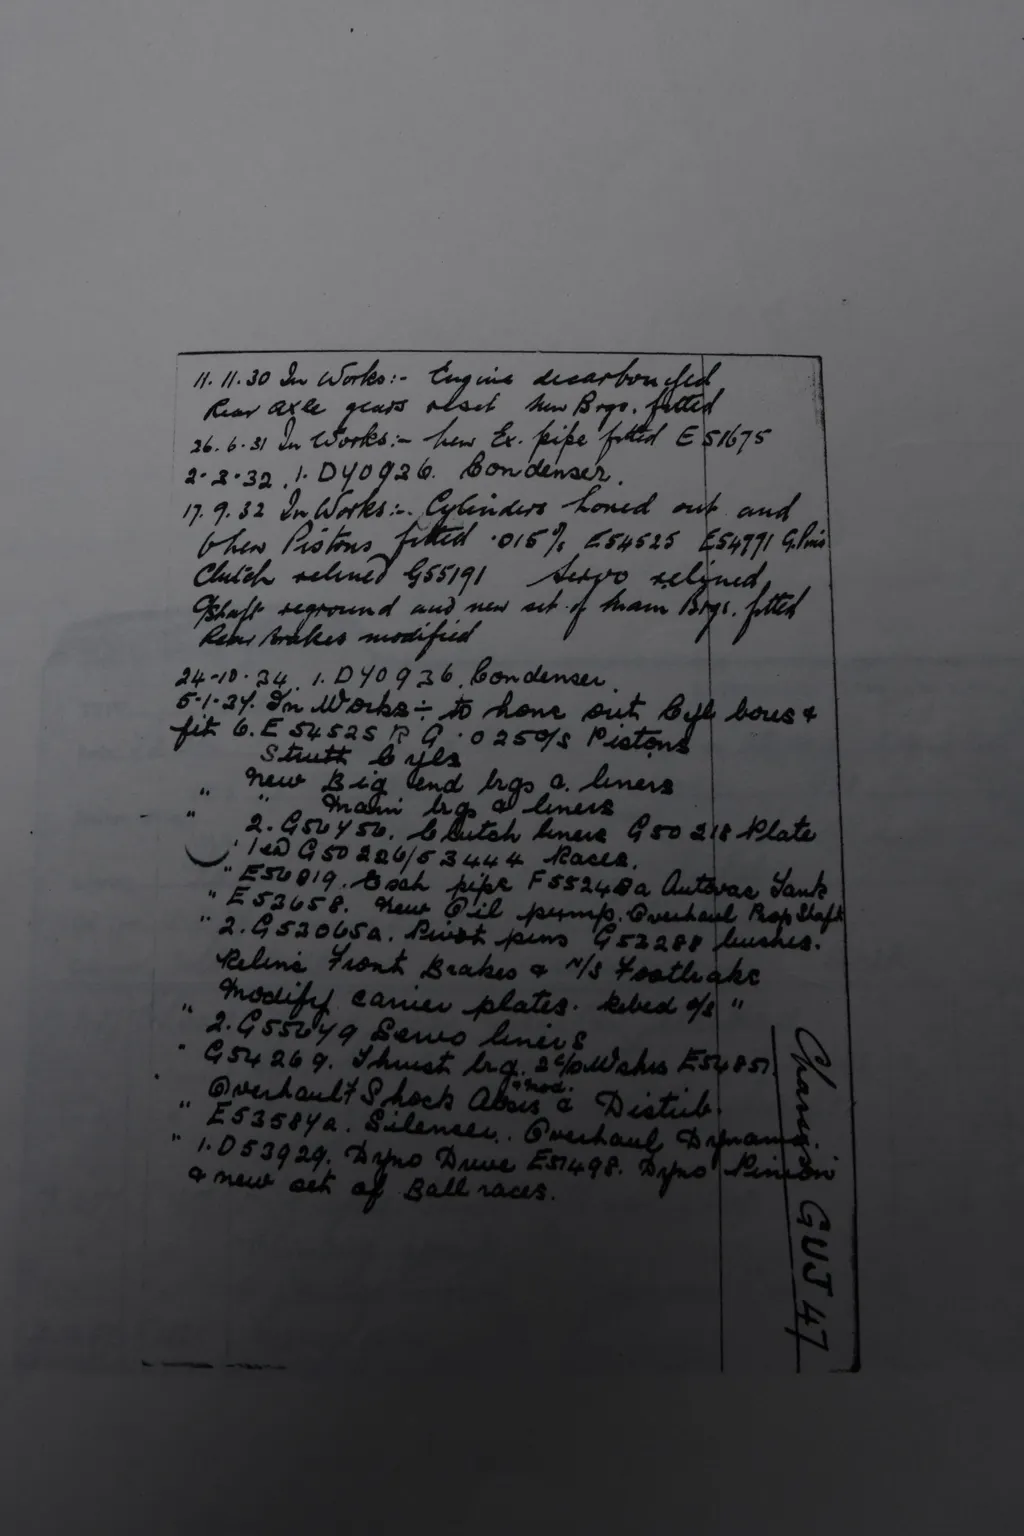 11.11.30 In Works:- Engine decarbonised
Rear axle gears reset New Brgs. fitted
26.6.31 In Works:- New Ex. pipe fitted E51675
2.2.32. 1. DY0936. Condenser.
17.9.32 In Works:- Cylinders honed out and
when Pistons fitted .015 % E54525 E54771 G.Pins
Clutch relined G55191 Servo relined
C/Shaft reground and new set of Main Brgs. fitted
Rear Brakes modified
24-10-34. 1. DY0936. Condenser.
5-1-37. In Works:- to hone out Cyl bores &
fit 6. E54525 R G .025 O/S Pistons
Strutt Cyls
" New Big end brgs & liners
" " Main brgs & liners
2. G56456. Clutch liners G50218 Plate
1 ea G50226/53444 Races.
" E56819. Exh pipe F55248a Autovac Tank
" E53658. New Oil pump. Overhaul Prop Shaft
" 2. G53065a. Pivot pins G53288 bushes.
Reline Front Brakes & N/S Footbrake
Modify carrier plates. Rebed O/S "
" 2. G55649 Servo liners
" G54269. Thrust brg. 2 Wshrs E54857.
Overhaul F Shock Absrs & Distrib.
& Mod.
" E53584a. Silencer. Overhaul Dynamo.
" 1. D53929. Dyno Drive E51498. Dyno Pinion
& new set of Ball races.
Chassis GUJ 47